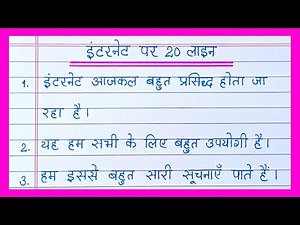 इंटरनेट पर 20 लाइन
1. इंटरनेट आजकल बहुत प्रसिद्ध होता जा
रहा है।
2. यह हम सभी के लिए बहुत उपयोगी है।
3. हम इससे बहुत सारी सूचनाएँ पाते हैं।